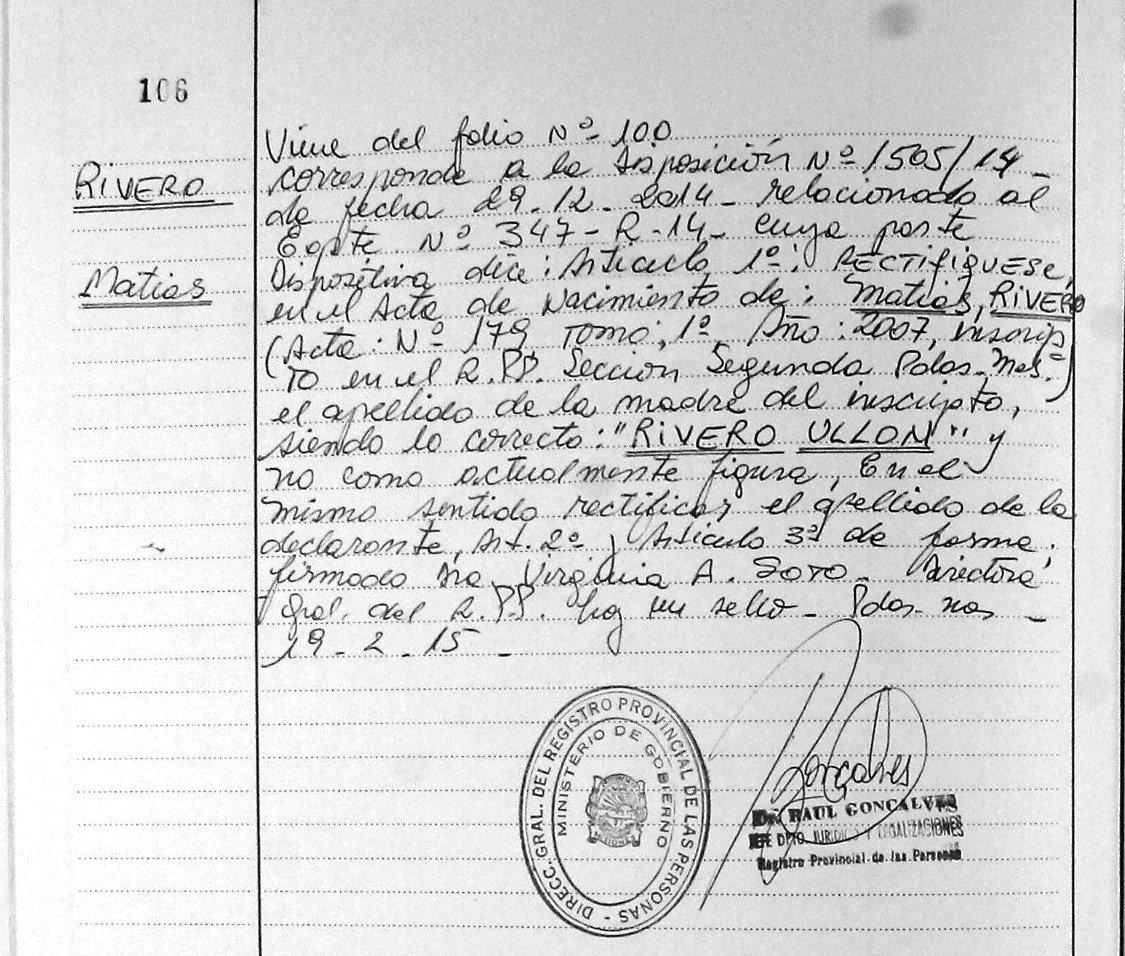 106
RIVERO
Matias
Viene del folio Nº 100
corresponde a la Disposición Nº 1505/14-
de fecha 29.12.2014- relacionado al
Expte Nº 347-R-14- cuya parte
Dispositiva dice: Articulo 1º: RECTIFIQUESE,
en el Acta de Nacimiento de: Matias, RIVERO
(Acta: Nº 179 Tomo: 1º Año: 2007, inscrip
to en el R.PP. Sección Segunda Pdas. Mnes.)
el apellido de la madre del inscripto,
siendo lo correcto: "RIVERO ULLON" y
no como actualmente figura, En el
mismo sentido rectificar el apellido de la
declarante, Art. 2º, Articulo 3º de forma.
firmado Dra. Virginia A. SOTO- Directora
Gral. del R.PP. hay un sello- Pdas- nes-
19-2-15-
DIRECC. GRAL. DEL REGISTRO PROVINCIAL DE LAS PERSONAS -
MINISTERIO DE GOBIERNO
MISIONES
Goncalves
Dr. RAUL GONCALVES
JEFE DPTO. JURIDICO Y LEGALIZACIONES
Registro Provincial de las Personas